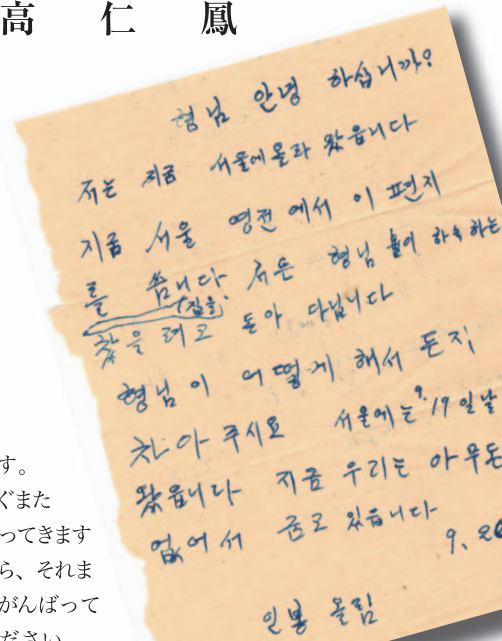 高 仁 鳳
형님 안녕 하십니까?
저는 지금 서울에올라 왔읍니다
지금 서울 영전 에서 이 편지
를 씁니다 저는 형님 들이 하숙 하는
(집을)
찾을 려고 돈아 다닙니다
형님이 어떻게 해서 든지
차아 주시요 서울에는 9.19일날
왔읍니다 지금 우리는 아무돈
없어서 굼고 있읍니다
9. 20
인봉 올림
す。
ぐまた
ってきます
ら、それま
がんばって
ださい